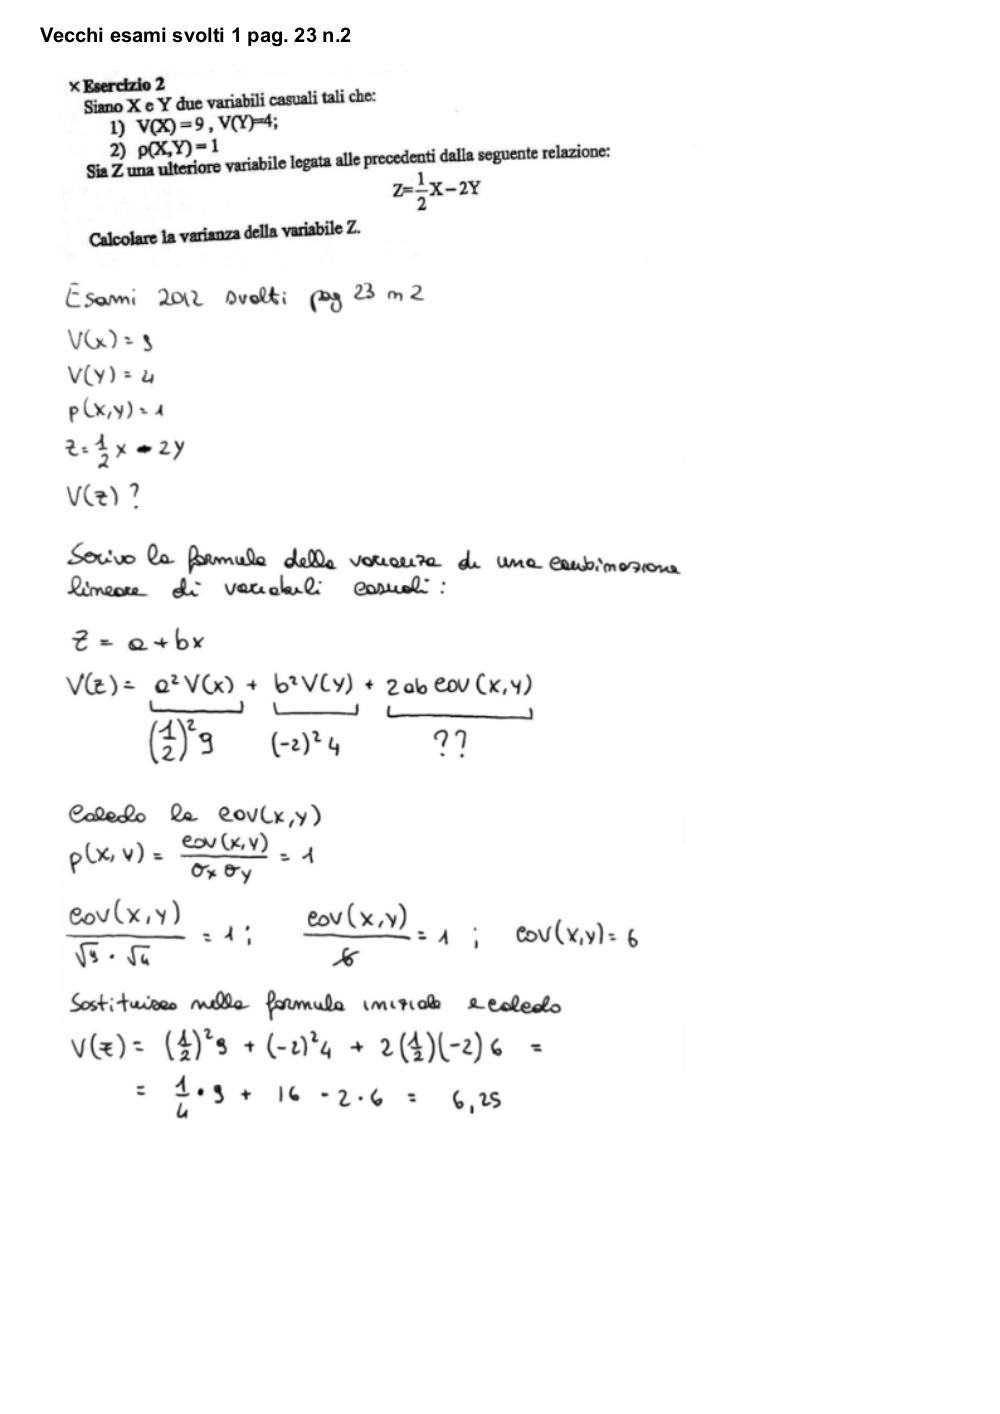 Vecchi esami svolti 1 pag. 23 n.2
× Esercizio 2
Siano X e Y due variabili casuali tali che:
1) V(X)=9, V(Y)=4;
2) ρ(X,Y)=1
Sia Z una ulteriore variabile legata alle precedenti dalla seguente relazione:
Z=1/2 X−2Y
Calcolare la varianza della variabile Z.
Esami 2012 svolti pag 23 n 2
V(x) = 9
V(y) = 4
ρ(x,y) = 1
Z = 1/2 x - 2y
V(z) ?
Scrivo la formula della varianza di una combinazione
lineare di variabili casuali:
Z = a + bx
V(z) = a² V(x) + b² V(y) + 2ab cov(x,y)
(1/2)² 9 (-2)² 4 ??
Calcolo la cov(x,y)
ρ(x,y) = cov(x,y)/σx σy = 1
cov(x,y)/√9 · √4 = 1 ; cov(x,y)/6 = 1 ; cov(x,y) = 6
Sostituisco nella formula iniziale e calcolo
V(z) = (1/2)² 9 + (-2)² 4 + 2(1/2)(-2) 6 =
= 1/4 · 9 + 16 - 2 · 6 = 6,25